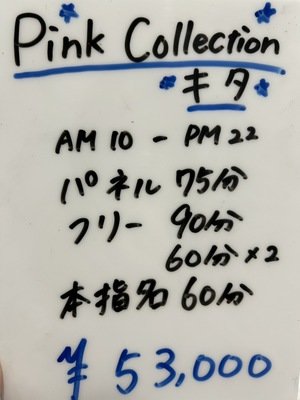 Pink Collection
キタ
AM 10 - PM 22
パネル 75分
フリー 90分
60分×2
本指名 60分
¥ 53,000